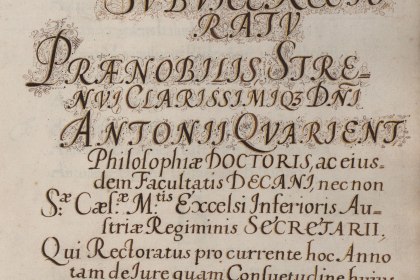 SUBVICERECTO
RATU
PRÆNOBILIS STRE-
NVI CLARISSIMIQ3 DÑI
ANTONII QVARIENT
Philosophiæ DOCTORIS, ac eius-
dem Facultatis DECANI, nec non
S.æ Cæs.æ M.tis Excelsi Inferioris Au-
striæ Regiminis SECRETARII,
Qui Rectoratus pro currente hoc Anno
tam de Jure quam Consuetudine huius